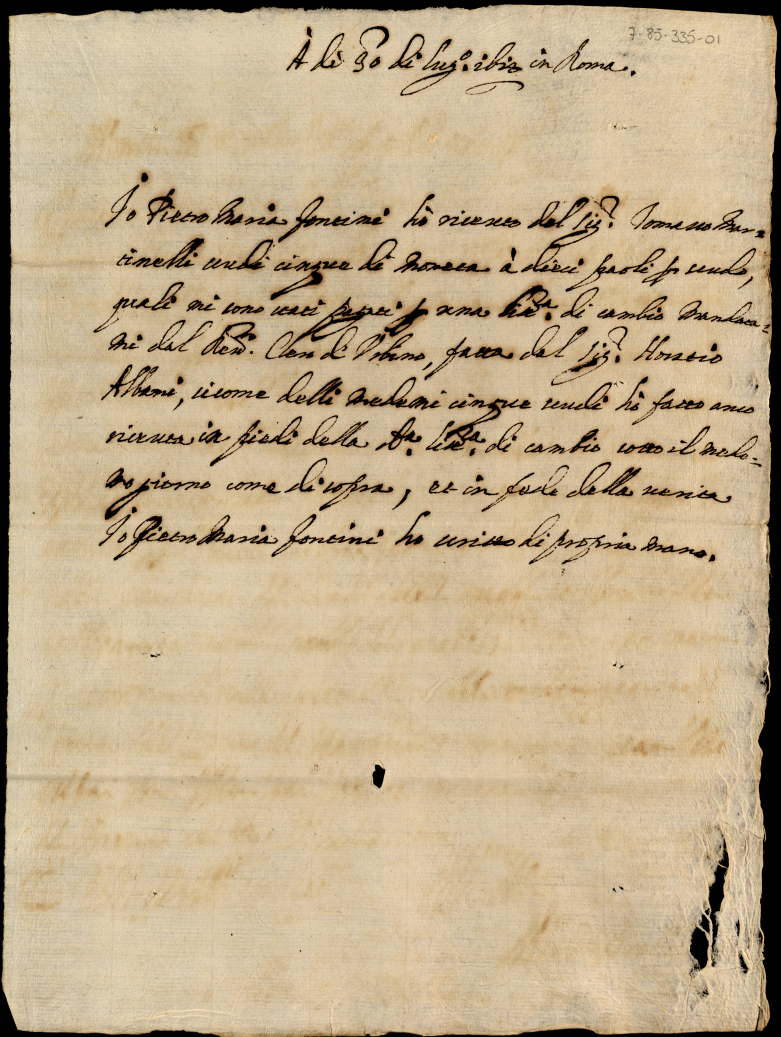 7-85-335-01
A dì 30 di lug.o 1612 in Roma.
Io Pietro Maria Fontini hò riceuto dal Sig.r Tomasso Mar=
tinelli scudi cinque di moneta à dieci paoli p scudo,
quali mi sono stati pagati p una lra. di cambio mandata=
mi dal Rev.do Cleri di Urbino, fatta dal Sig.r Horatio
Albani, sicome delli medemi cinque scudi hò fatto anco
riceuta in piedi della d.a lra. di cambio sotto il mede=
mo giorno come di sopra, et in fede della verità
Io Pietro Maria Fontini ho scritto di propria mano.